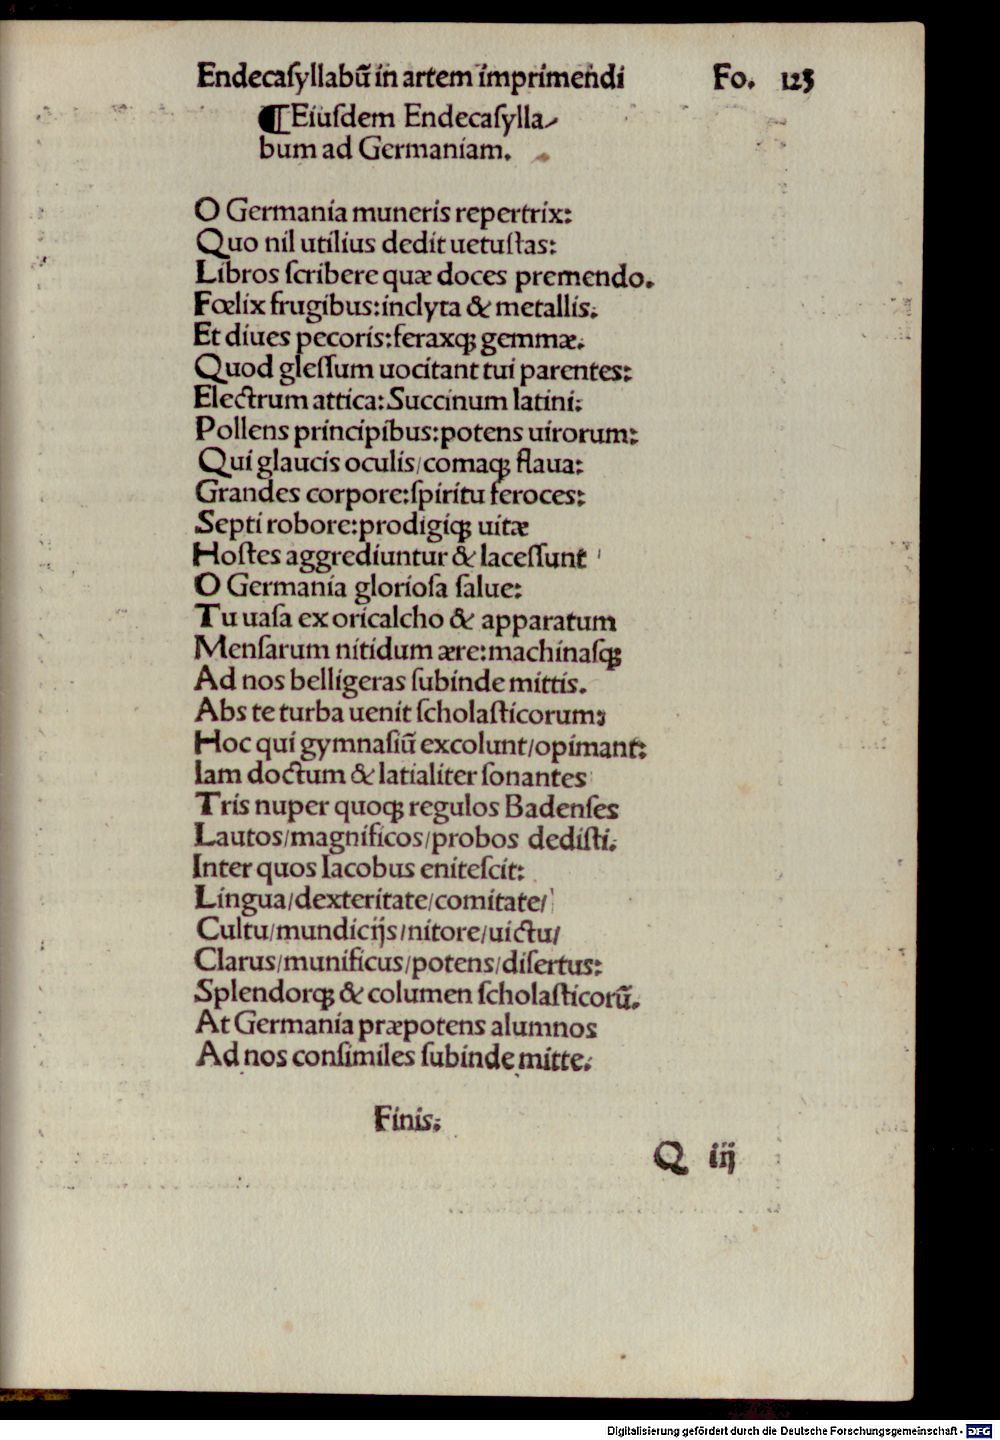 Endecaſyllabū in artem imprimendi Fo. 123
¶Eiuſdem Endecaſylla⸗
bum ad Germaniam.
O Germania muneris repertrix:
Quo nil utilius dedit uetuſtas:
Libros ſcribere quæ doces premendo.
Fœlix frugibus:inclyta & metallis.
Et diues pecoris:feraxqꝫ gemmæ.
Quod gleſſum uocitant tui parentes:
Electrum attica:Succinum latini.
Pollens principibus:potens uirorum:
Qui glaucis oculis/comaqꝫ flaua:
Grandes corpore:ſpiritu feroces:
Septi robore:prodigiqꝫ uitæ
Hoſtes aggrediuntur & laceſſunt
O Germania glorioſa ſalue:
Tu uaſa ex oricalcho & apparatum
Menſarum nitidum ære:machinaſqꝫ
Ad nos belligeras ſubinde mittis.
Abs te turba uenit ſcholaſticorum:
Hoc qui gymnaſiū excolunt/opimant:
Iam doctum & latialiter ſonantes
Tris nuper quoqꝫ regulos Badenſes
Lautos/magnificos/probos dediſti.
Inter quos Iacobus eniteſcit:
Lingua/dexteritate/comitate/
Cultu/mundicijs/nitore/uictu/
Clarus/munificus/potens/diſertus:
Splendorqꝫ & columen ſcholaſticorū.
At Germania præpotens alumnos
Ad nos conſimiles ſubinde mitte.
Finis.
Q iij
Digitalisierung gefördert durch die Deutsche Forschungsgemeinschaft - DFG